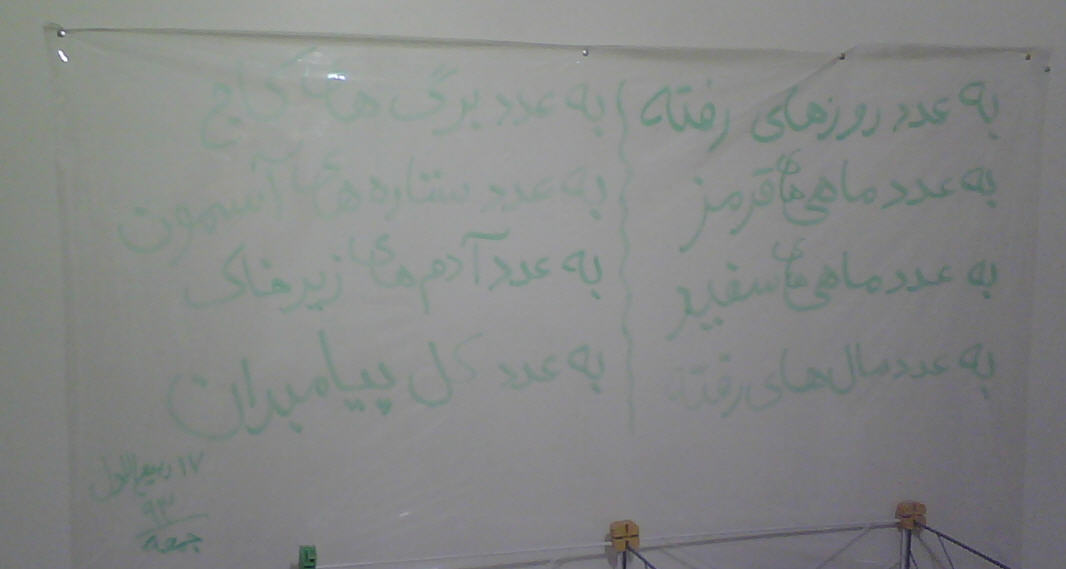 به عدد روزهای رفته
به عدد ماهی‌های قرمز
به عدد ماهی‌های سفید
به عدد مال‌های رفته
به عدد برگ‌های کاج
به عدد ستاره‌های آسمون
به عدد آدم‌های زیر خاک
به عدد کل پیامبران
۱۷ ربیع‌الاول
۹۳
جمعه